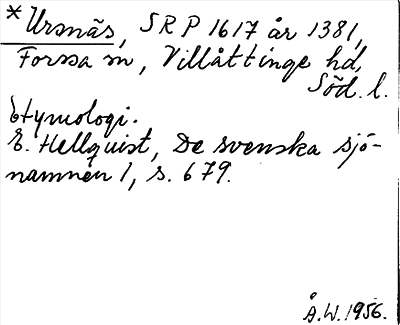 *Ursnäs, SRP 1617 år 1381,
Forssa sn, Villåttinge hd,
Söd. l.
Etymologi.
E. Hellquist, De svenska sjö-
namnen 1, s. 679.
Å.W. 1956.